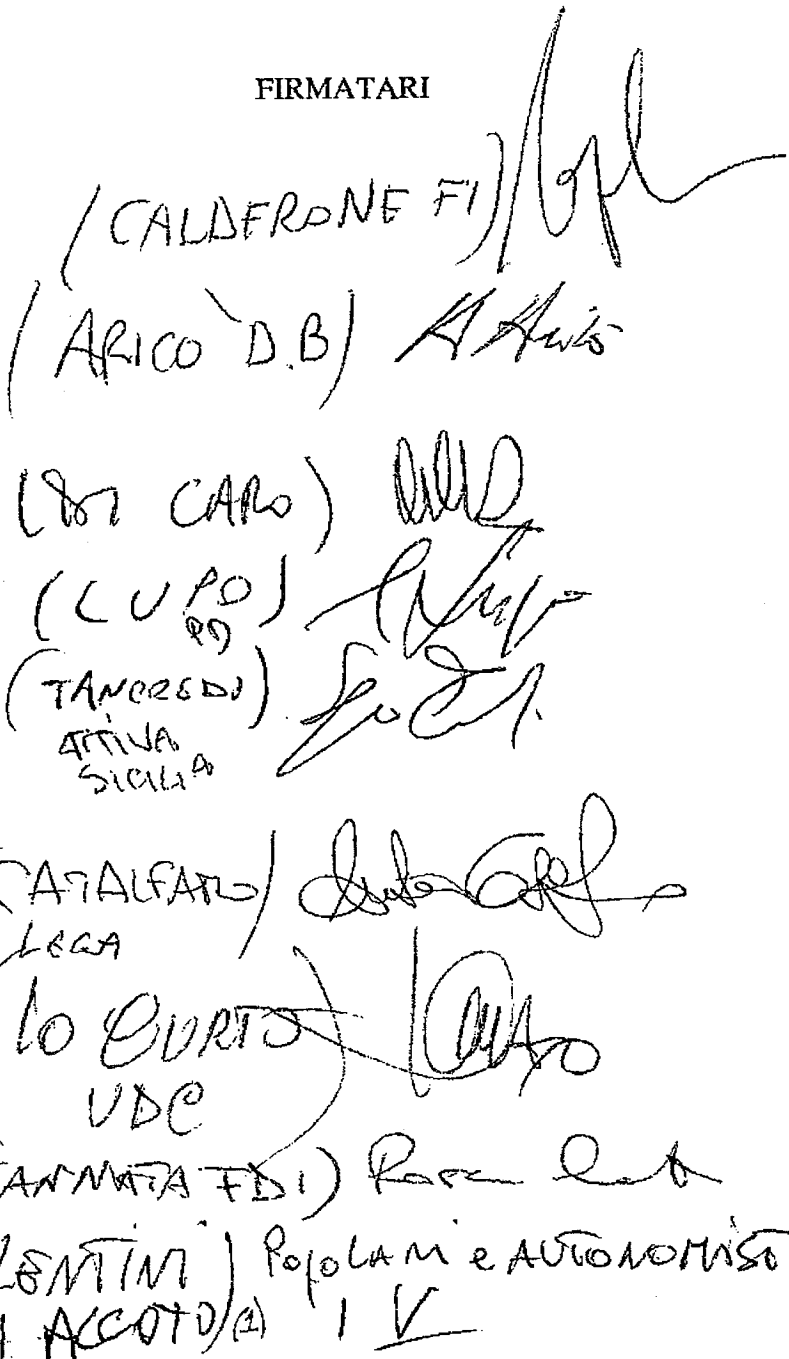 FIRMATARI
(CALDERONE FI)
(ARICO' D.B)
(DI CARO)
(LUPO)
PD
(TANCREDI)
ATTIVA
SICILIA
CATALFAMO)
LEGA
LO CURTO)
UDC
ANNATA FDI)
LENTINI) Popolari e AUTONOMISTI
ACCOTO)(1) I V